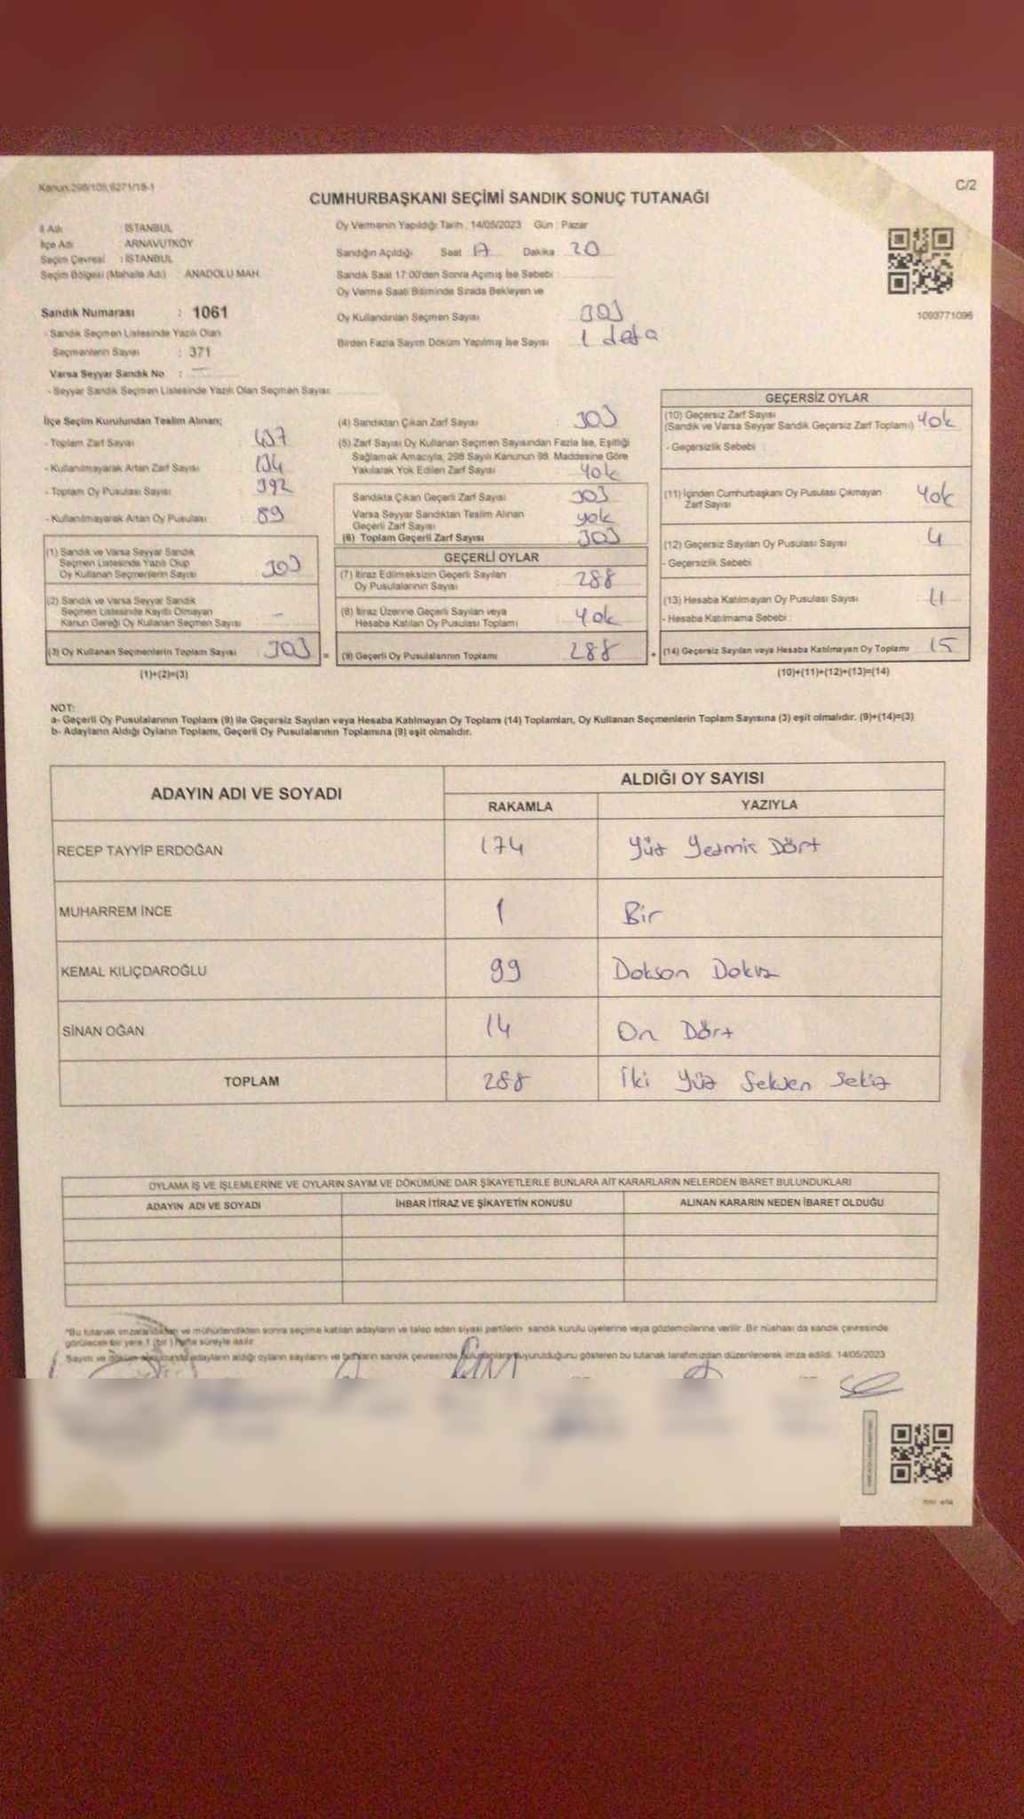 Kanun:298/105;6271/18-1
C/2
CUMHURBAŞKANI SEÇİMİ SANDIK SONUÇ TUTANAĞI
İl Adı : İSTANBUL
İlçe Adı : ARNAVUTKÖY
Seçim Çevresi : İSTANBUL
Seçim Bölgesi (Mahalle Adı) : ANADOLU MAH.
Sandık Numarası : 1061
- Sandık Seçmen Listesinde Yazılı Olan
Seçmenlerin Sayısı : 371
Varsa Seyyar Sandık No : —
- Seyyar Sandık Seçmen Listesinde Yazılı Olan Seçmen Sayısı
Oy Vermenin Yapıldığı Tarih : 14/05/2023 Gün : Pazar
Sandığın Açıldığı Saat 17 Dakika 20
Sandık Saat 17:00'den Sonra Açılmış İse Sebebi
Oy Verme Saati Bitiminde Sırada Bekleyen ve
Oy Kullandırılan Seçmen Sayısı 303
Birden Fazla Sayım Döküm Yapılmış İse Sayısı 1 defa
1093771096
İlçe Seçim Kurulundan Teslim Alınan;
- Toplam Zarf Sayısı 437
- Kullanılmayarak Artan Zarf Sayısı 134
- Toplam Oy Pusulası Sayısı 392
- Kullanılmayarak Artan Oy Pusulası 89
(1) Sandık ve Varsa Seyyar Sandık
Seçmen Listesinde Yazılı Olup
Oy Kullanan Seçmenlerin Sayısı 303
(2) Sandık ve Varsa Seyyar Sandık
Seçmen Listesinde Kayıtlı Olmayan
Kanun Gereği Oy Kullanan Seçmen Sayısı —
(3) Oy Kullanan Seçmenlerin Toplam Sayısı 303 =
(1)+(2)=(3)
(4) Sandıktan Çıkan Zarf Sayısı : 303
(5) Zarf Sayısı Oy Kullanan Seçmen Sayısından Fazla İse, Eşitliği
Sağlamak Amacıyla, 298 Sayılı Kanunun 98. Maddesine Göre
Yakılarak Yok Edilen Zarf Sayısı yok
Sandıkta Çıkan Geçerli Zarf Sayısı 303
Varsa Seyyar Sandıktan Teslim Alınan
Geçerli Zarf Sayısı yok
(6) Toplam Geçerli Zarf Sayısı 303
GEÇERLİ OYLAR
(7) İtiraz Edilmeksizin Geçerli Sayılan
Oy Pusulalarının Sayısı 288
(8) İtiraz Üzerine Geçerli Sayılan veya
Hesaba Katılan Oy Pusulası Toplamı yok
(9) Geçerli Oy Pusulalarının Toplamı 288 +
GEÇERSİZ OYLAR
(10) Geçersiz Zarf Sayısı
(Sandık ve Varsa Seyyar Sandık Geçersiz Zarf Toplamı) yok
- Geçersizlik Sebebi :
(11) İçinden Cumhurbaşkanı Oy Pusulası Çıkmayan
Zarf Sayısı yok
(12) Geçersiz Sayılan Oy Pusulası Sayısı 4
- Geçersizlik Sebebi
(13) Hesaba Katılmayan Oy Pusulası Sayısı 11
- Hesaba Katılmama Sebebi :
(14) Geçersiz Sayılan veya Hesaba Katılmayan Oy Toplamı 15
(10)+(11)+(12)+(13)=(14)
NOT:
a- Geçerli Oy Pusulalarının Toplamı (9) ile Geçersiz Sayılan veya Hesaba Katılmayan Oy Toplamı (14) Toplamları, Oy Kullanan Seçmenlerin Toplam Sayısına (3) eşit olmalıdır. (9)+(14)=(3)
b- Adayların Aldığı Oyların Toplamı, Geçerli Oy Pusulalarının Toplamına (9) eşit olmalıdır.
ADAYIN ADI VE SOYADI ALDIĞI OY SAYISI
RAKAMLA YAZIYLA
RECEP TAYYİP ERDOĞAN 174 Yüz Yetmiş Dört
MUHARREM İNCE 1 Bir
KEMAL KILIÇDAROĞLU 99 Doksan Dokuz
SİNAN OĞAN 14 On Dört
TOPLAM 288 İki Yüz Seksen Sekiz
OYLAMA İŞ VE İŞLEMLERİNE VE OYLARIN SAYIM VE DÖKÜMÜNE DAİR ŞİKAYETLERLE BUNLARA AİT KARARLARIN NELERDEN İBARET BULUNDUKLARI
ADAYIN ADI VE SOYADI İHBAR İTİRAZ VE ŞİKAYETİN KONUSU ALINAN KARARIN NEDEN İBARET OLDUĞU
*Bu tutanak imzalandıktan ve mühürlendikten sonra seçime katılan adayların ve talep eden siyasi partilerin sandık kurulu üyelerine veya gözlemcilerine verilir. Bir nüshası da sandık çevresinde
görülecek bir yere 1 (bir) hafta süreyle asılır
Sayım ve döküm adayların aldığı oyların sayılarını ve sandık çevresinde duyurulduğunu gösteren bu tutanak tarafımızdan düzenlenerek imza edildi. 14/05/2023